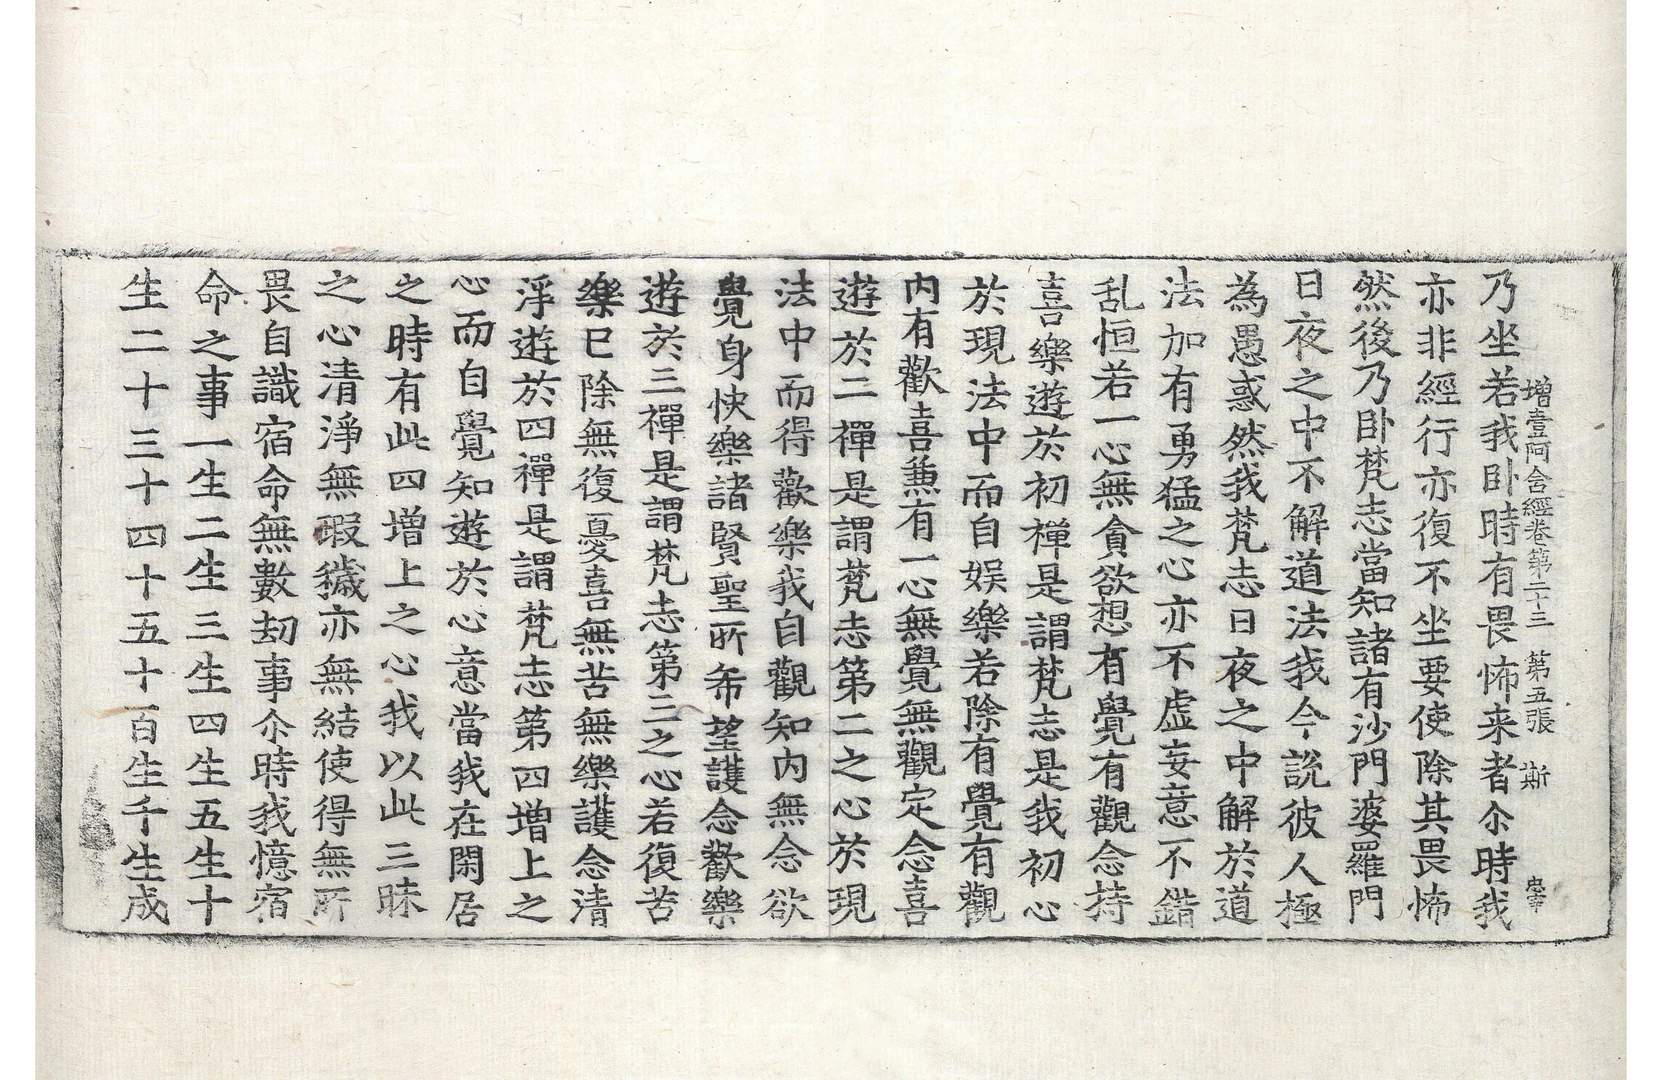 增壹阿含經卷第二十三 第五張 斯
乃坐若我卧時有畏怖来者尒時我
亦非經行亦復不坐要使除其畏怖
然後乃卧梵志當知諸有沙門婆羅門
日夜之中不解道法我今說彼人極
為愚惑然我梵志日夜之中解於道
法加有勇猛之心亦不虛妄意不錯
乱恒若一心無貪欲想有覺有觀念持
喜樂遊於初禅是謂梵志是我初心
於現法中而自娛樂若除有覺有觀
内有歡喜兼有一心無覺無觀定念喜
遊於二禪是謂梵志第二之心於現
法中而得歡樂我自觀知内無念欲
覺身快樂諸賢聖所希望護念歡樂
遊於三禪是謂梵志第三之心若復苦
樂已除無復憂喜無苦無樂護念清
淨遊於四禪是謂梵志第四增上之
心而自覺知遊於心意當我在閑居
之時有此四增上之心我以此三昧
之心清淨無瑕穢亦無結使得無所
畏自識宿命無數劫事尒時我憶宿
命之事一生二生三生四生五生十
生二十三十四十五十百生千生成